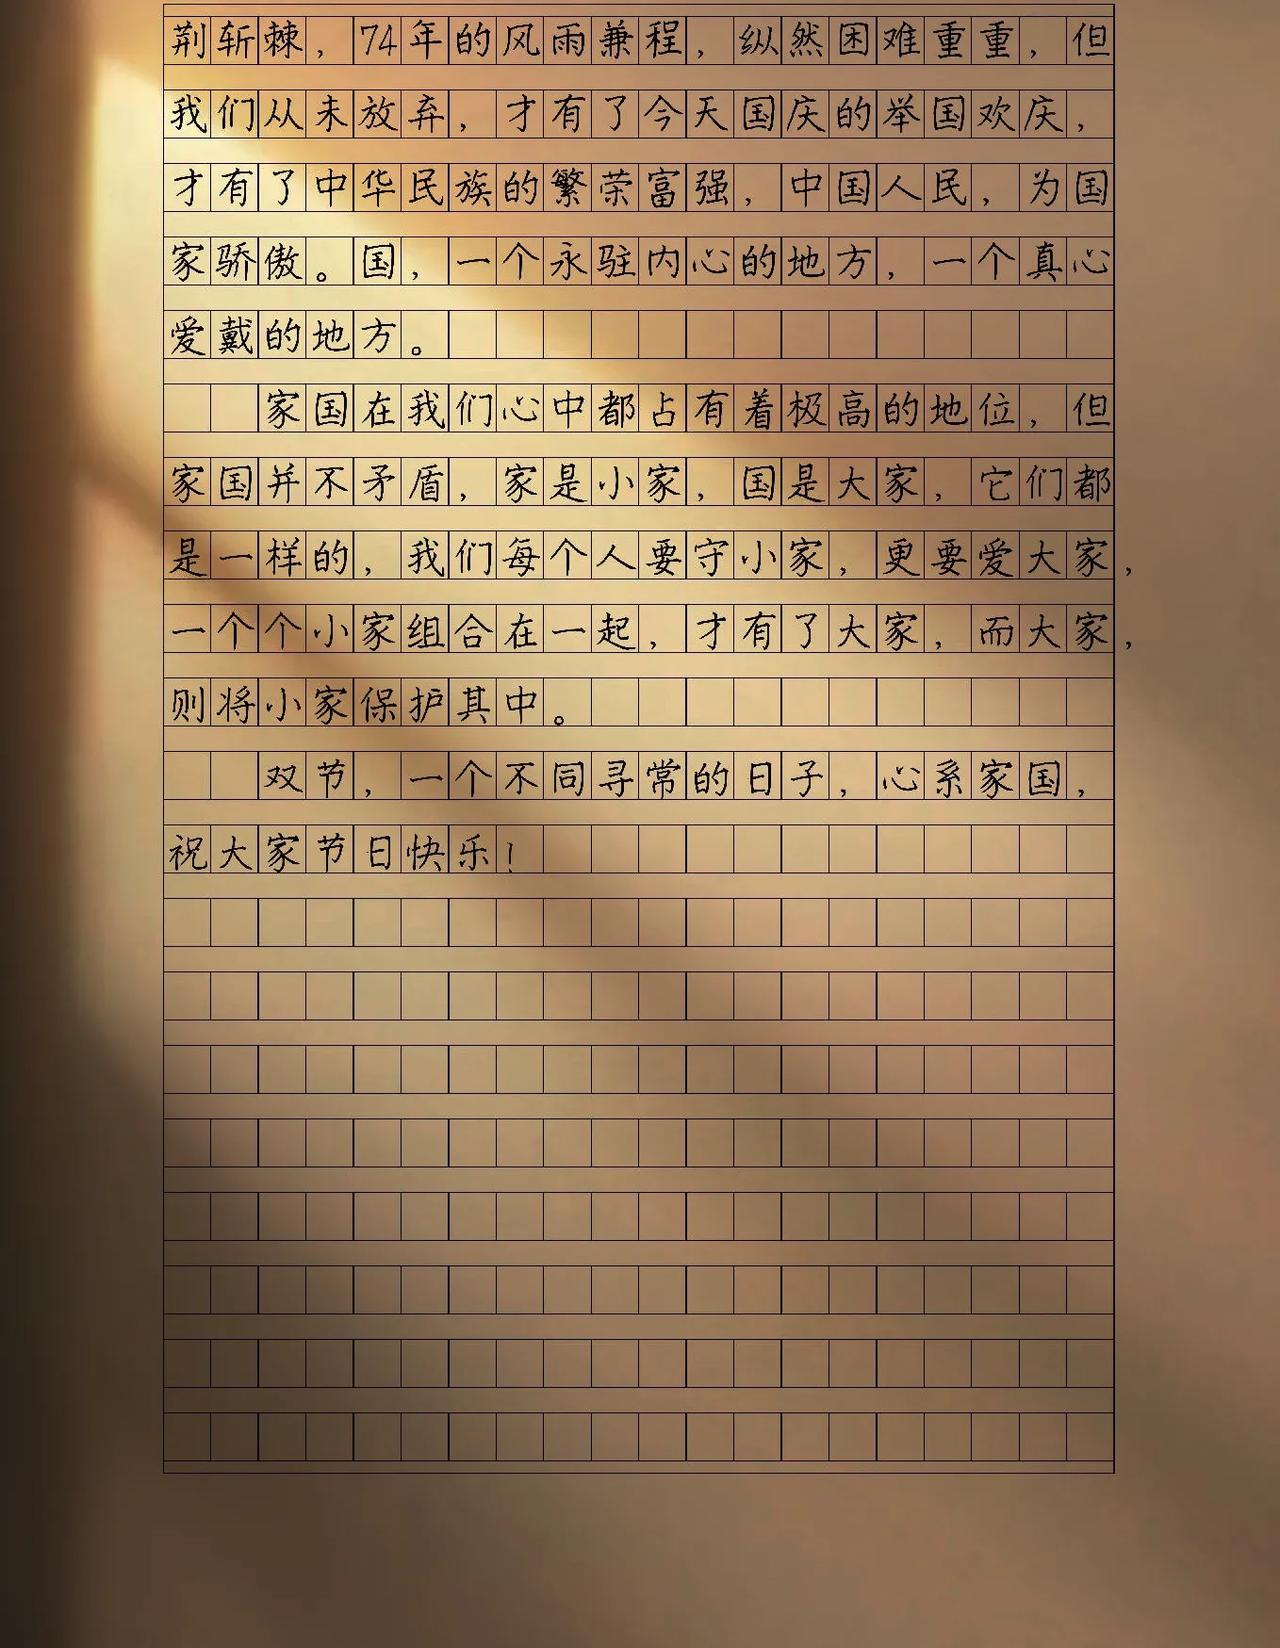 荆斩棘，74年的风雨兼程，纵然困难重重，但
我们从未放弃，才有了今天国庆的举国欢庆，
才有了中华民族的繁荣富强，中国人民，为国
家骄傲。国，一个永驻内心的地方，一个真心
爱戴的地方。
家国在我们心中都占有着极高的地位，但
家国并不矛盾，家是小家，国是大家，它们都
是一样的，我们每个人要守小家，更要爱大家，
一个个小家组合在一起，才有了大家，而大家，
则将小家保护其中。
双节，一个不同寻常的日子，心系家国，
祝大家节日快乐！